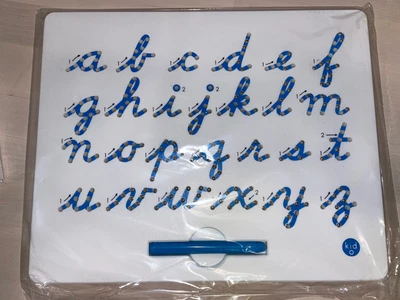 a b c d e f
g h i j k l m
n o p q r s t
u v w x y z
kid
o